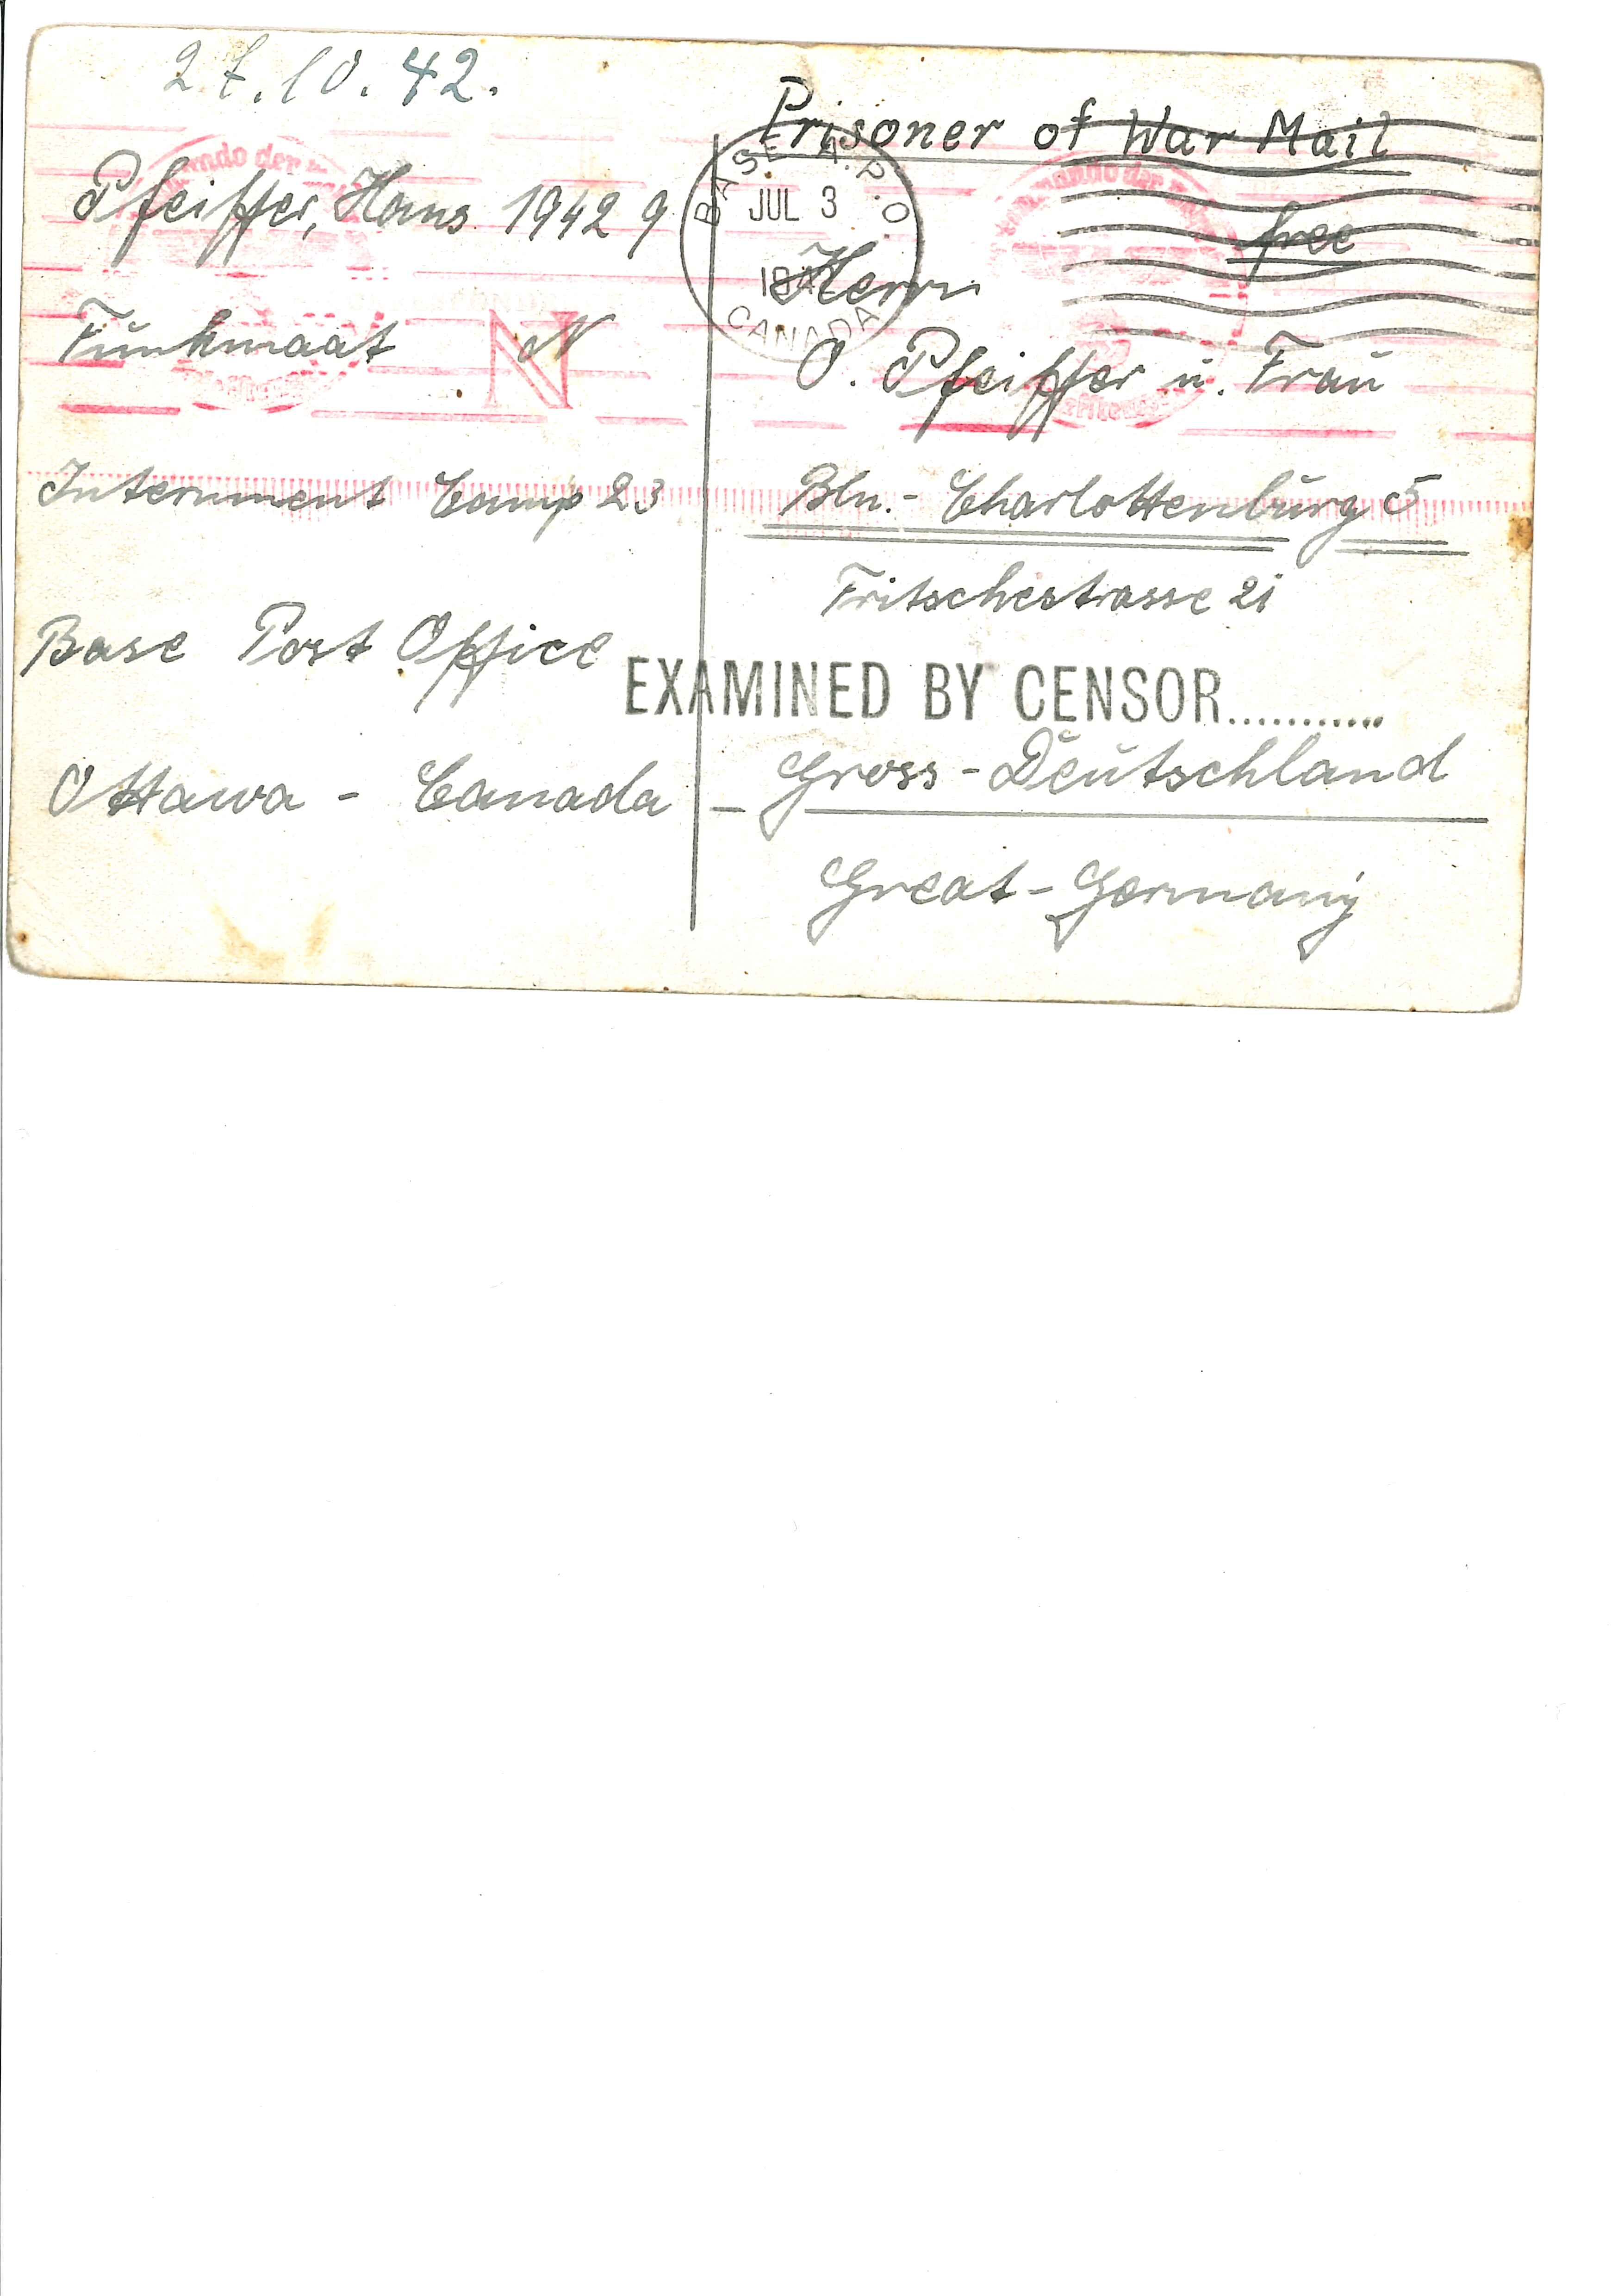 27.10.42.
Pfeiffer, Hans 19429
Funkmaat N
N
Internment Camp 23
Base Post Office
Ottawa - Canada
Prisoner of War Mail
free
BASE A.P.O.
JUL 3
CANADA
Herrn
O. Pfeiffer u. Frau
Bln.- Charlottenburg 5
Fritschestrasse 21
EXAMINED BY CENSOR............
Gross - Deutschland
Great - Germany